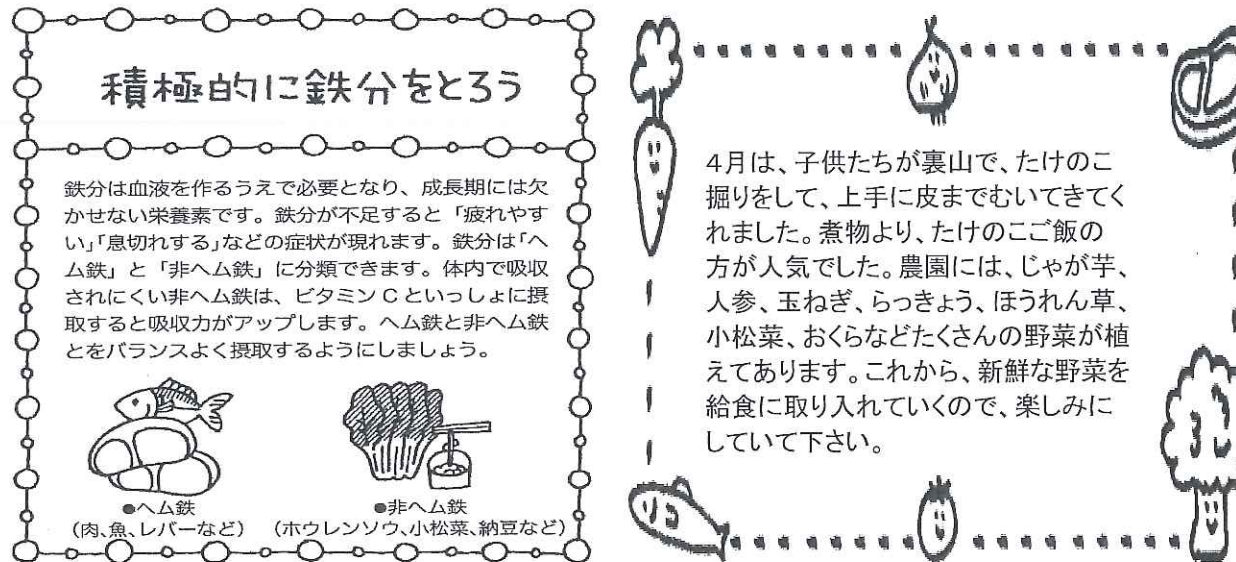 積極的に鉄分をとろう
鉄分は血液を作るうえで必要となり、成長期には欠
かせない栄養素です。鉄分が不足すると「疲れやす
い」「息切れする」などの症状が現れます。鉄分は「ヘ
ム鉄」と「非ヘム鉄」に分類できます。体内で吸収
されにくい非ヘム鉄は、ビタミンCといっしょに摂
取すると吸収力がアップします。ヘム鉄と非ヘム鉄
とをバランスよく摂取するようにしましょう。
●ヘム鉄
(肉、魚、レバーなど)
●非ヘム鉄
(ホウレンソウ、小松菜、納豆など)
4月は、子供たちが裏山で、たけのこ
掘りをして、上手に皮までむいてきてく
れました。煮物より、たけのこご飯の
方が人気でした。農園には、じゃが芋、
人参、玉ねぎ、らっきょう、ほうれん草、
小松菜、おくらなどたくさんの野菜が植
えてあります。これから、新鮮な野菜を
給食に取り入れていくので、楽しみに
していて下さい。